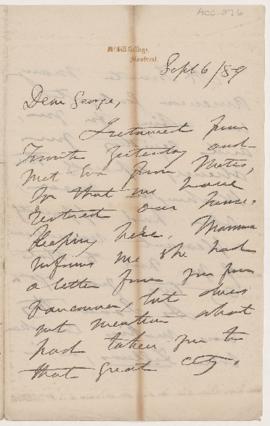 ACC-876
McGill College,
Montreal.
Sept 6/89
Dear George,
I returned from
yesterday and
met Eva from Metis,
so that we have
restored our house-
keeping here. Mamma
informs me she had
a letter from you from
Vancouver, but does
not mention what
had taken you to
that great city.